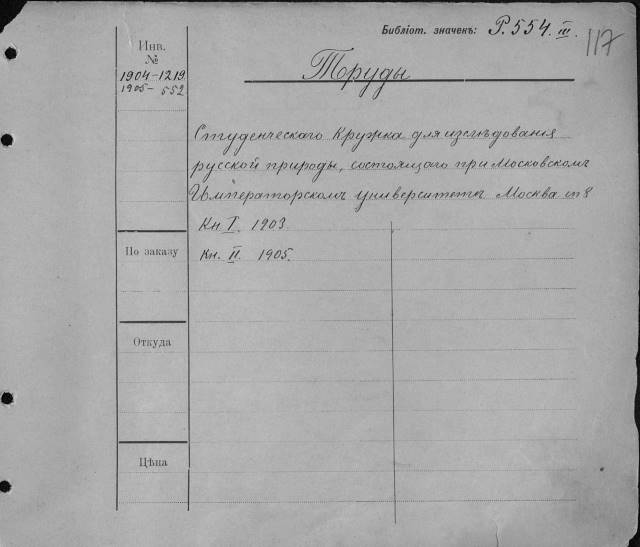 Библіот. значекъ: Р. 554. III.
117
Инв.
№
1904-1219
1905-552
Труды
Студенческаго Кружка для изслѣдованія
русской природы, состоящаго при Московскомъ
Императорскомъ университетѣ. Москва in 8
Кн. I. 1903.
По заказу
Кн. II. 1905.
Откуда
Цѣна